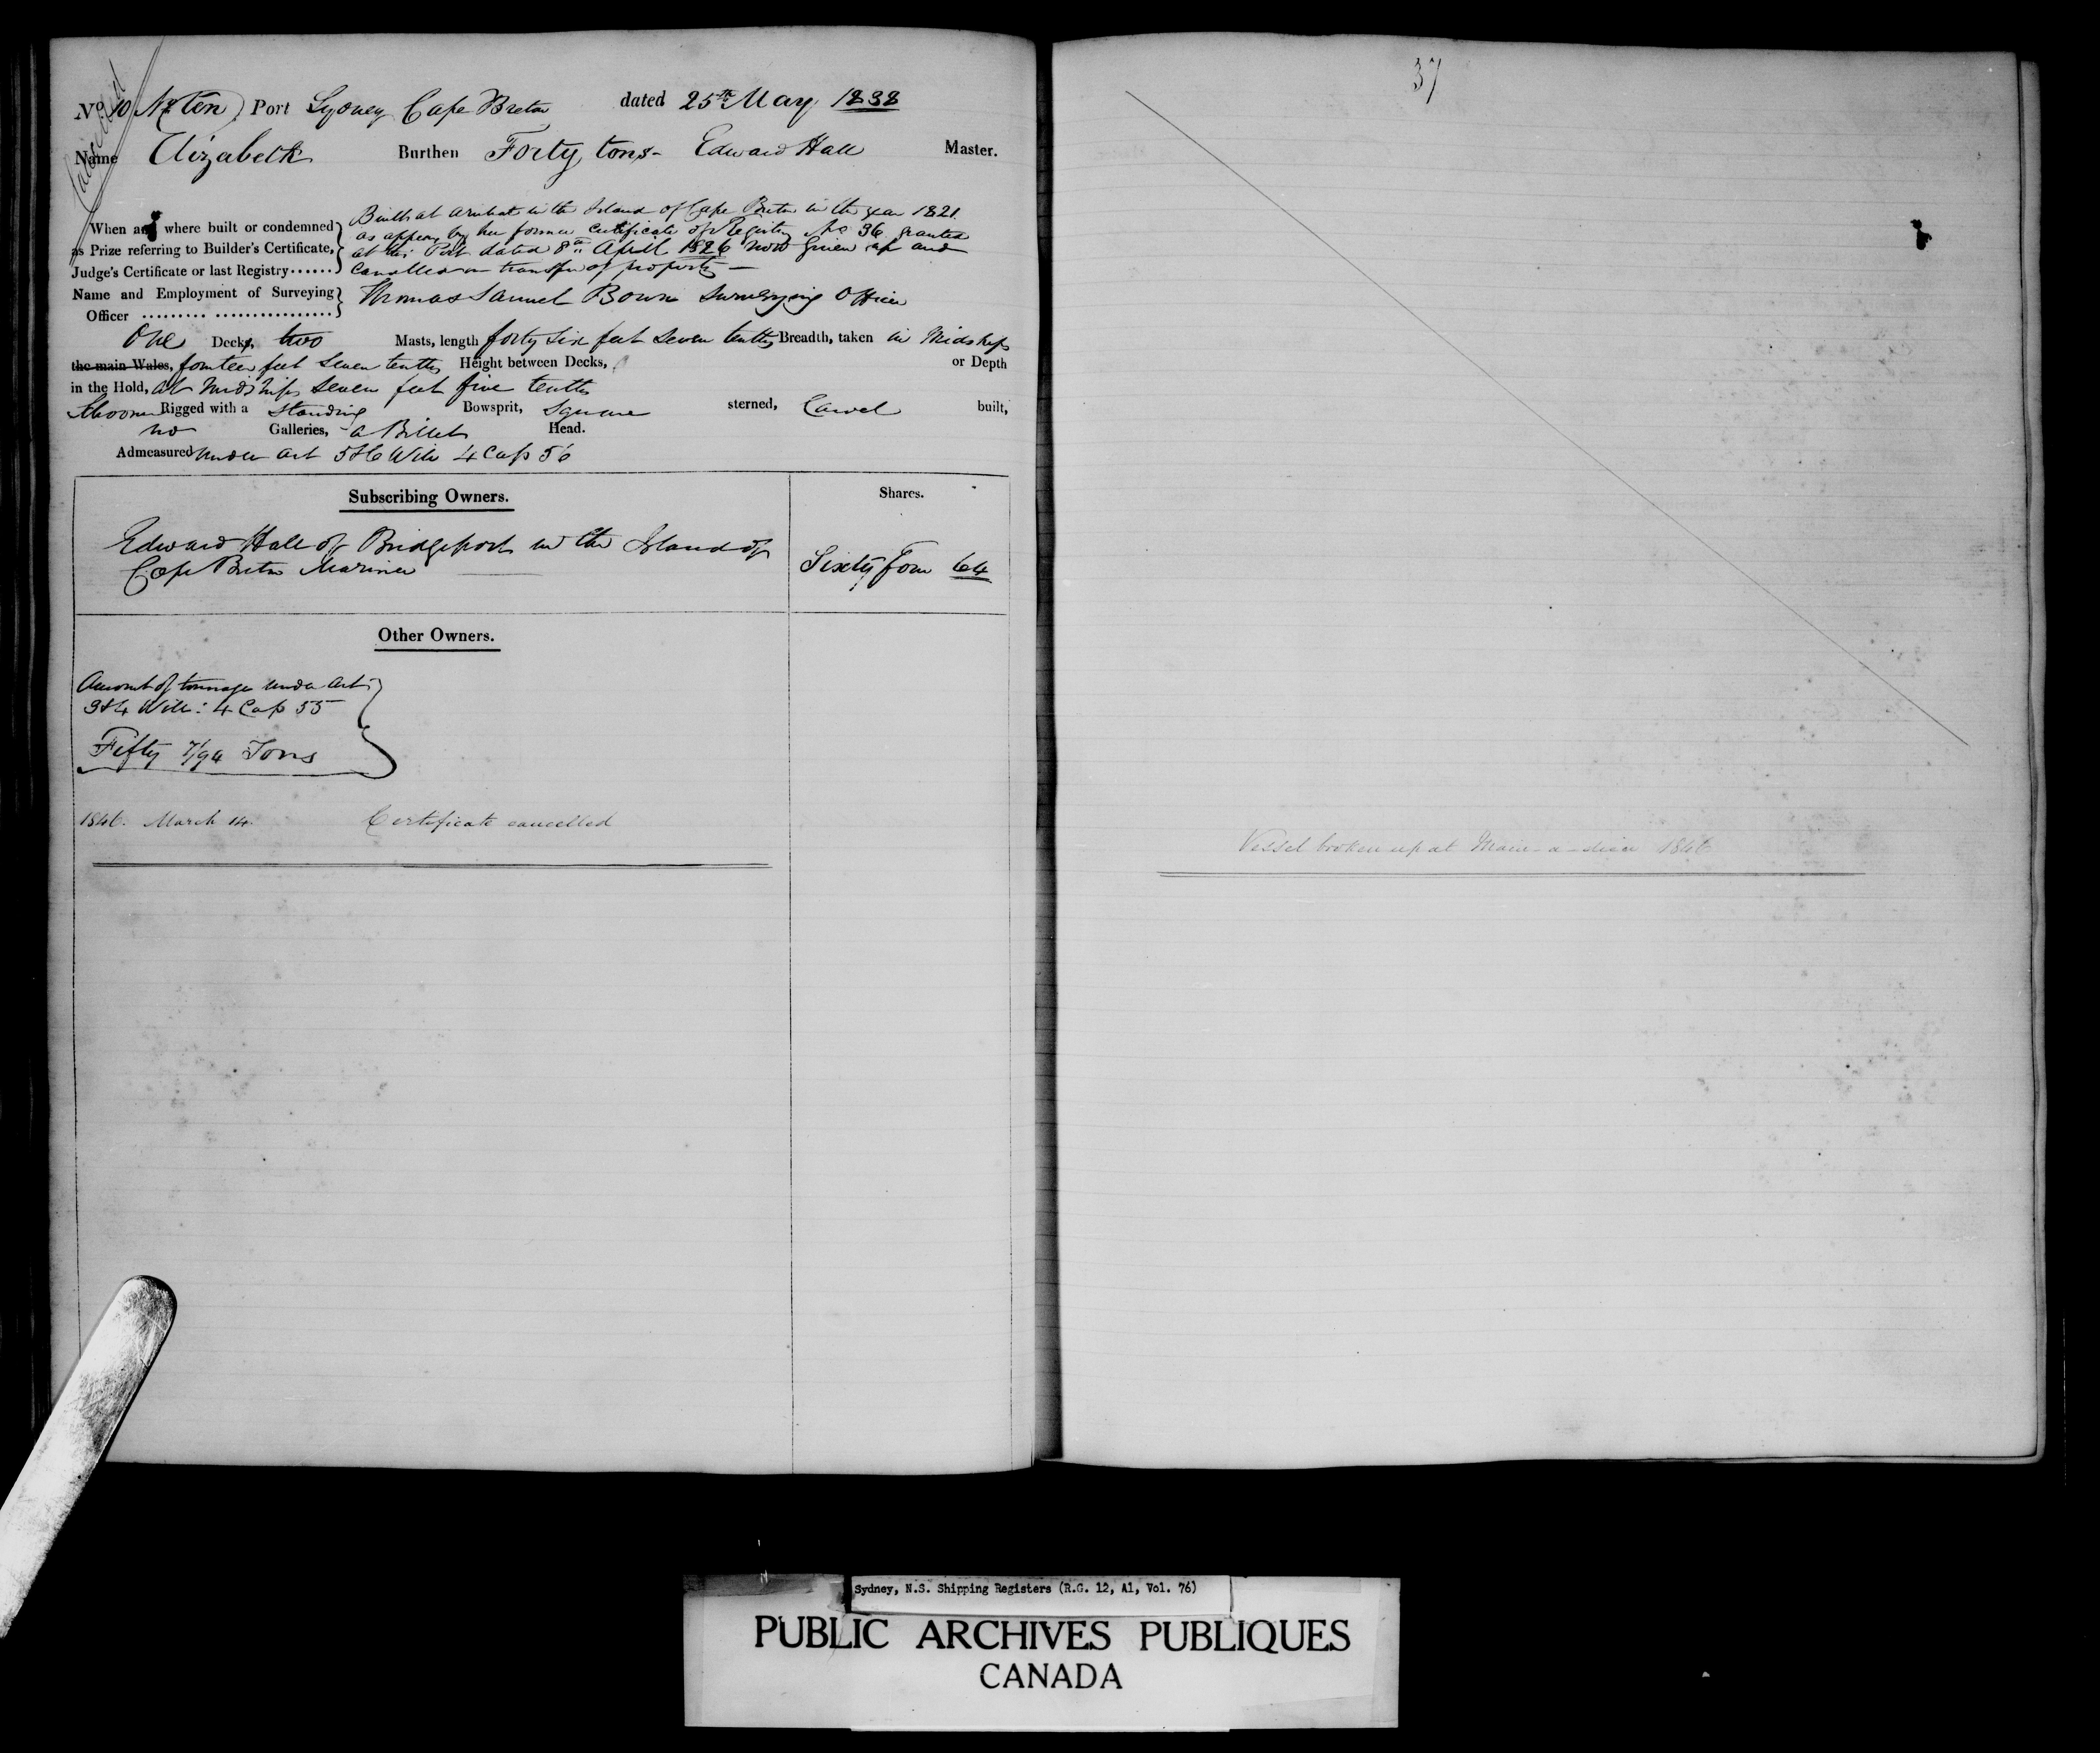 Cancelled
No 10 No ten) Port Sydney Cape Breton dated 25th May 1838
Name Elizabeth Burthen Forty tons - Edward Hall Master.
When and where built or condemned as Prize referring to Builder's Certificate, Judge's Certificate or last Registry......
Built at Arichat in the Island of Cape Breton in the year 1821.
as appears by her former Certificate of Registry No 36 granted
at this Port dated 8th April 1826 now given up and
Cancelled on transfer of property —
Name and Employment of Surveying Officer
Thomas Samuel Bown Surveying Officer
One Decks, two Masts, length forty six feet seven tenths Breadth, taken in Midships
the main Wales, fourteen feet seven tenths Height between Decks, or Depth
in the Hold, at Midships seven feet five tenths
Schooner Rigged with a Standing Bowsprit, Square sterned, Carvel built,
no Galleries, a Billet Head.
Admeasured under Act 5 & 6 Will 4 Cap 56
Subscribing Owners. Shares.
Edward Hall of Bridgeport in the Island of
Cape Breton Mariner Sixty four 64
Other Owners.
Amount of tonnage under Act
3 & 4 Will: 4 Cap 55
Fifty 7/94 Tons
1846. March 14. Certificate cancelled
37
Vessel broken up at Main-a-dieu 1846
Sydney, N.S. Shipping Registers (R.G. 12, A1, Vol. 76)
PUBLIC ARCHIVES PUBLIQUES
CANADA